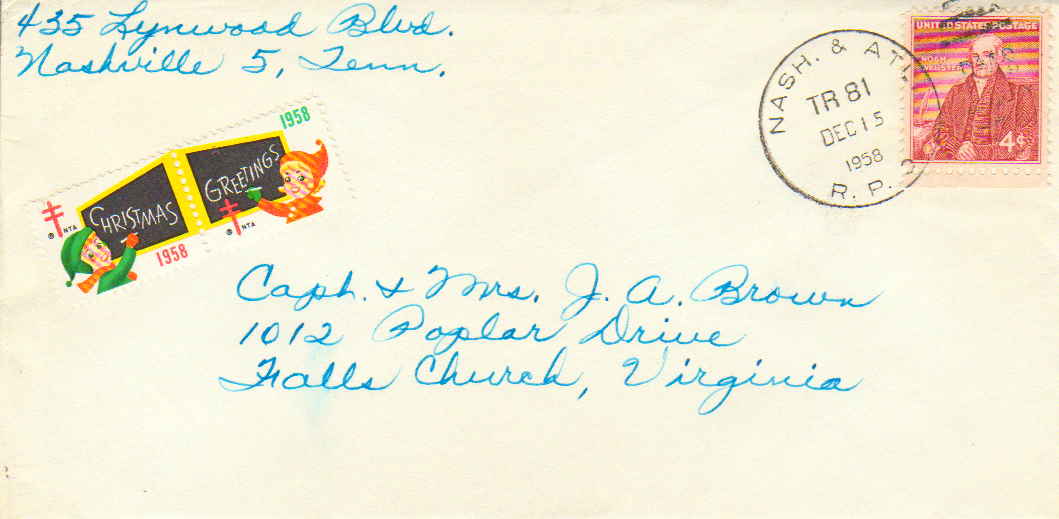 435 Lynwood Blvd.
Nashville 5, Tenn.
NASH. & ATL.
TR 81
DEC 15
1958
R. P. O.
UNITED STATES POSTAGE
NOAH
WEBSTER
4¢
1958
GREETINGS
® NTA
CHRISTMAS
® NTA
1958
Capt. & Mrs. J. A. Brown
1012 Poplar Drive
Falls Church, Virginia